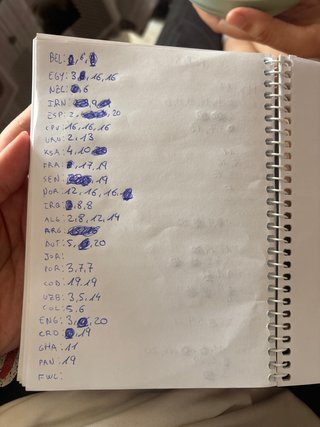 BEL: 6,
EGY: 3, 16, 16
NZL: 6
IRN: 9
ESP: 2, 20
CPV: 16, 16, 16
URU: 2, 13
KSA: 4, 10
FRA: 17, 19
SEN: 19
NOR: 12, 16, 16,
IRQ: 8, 8
ALG: 2, 8, 12, 14
ARG:
AUT: 5, 20
JOR:
POR: 3, 7, 7
COD: 19, 19
UZB: 3, 5, 14
COL: 5, 6
ENG: 3, 20
CRO: 19
GHA: 11
PAN: 19
FWC: